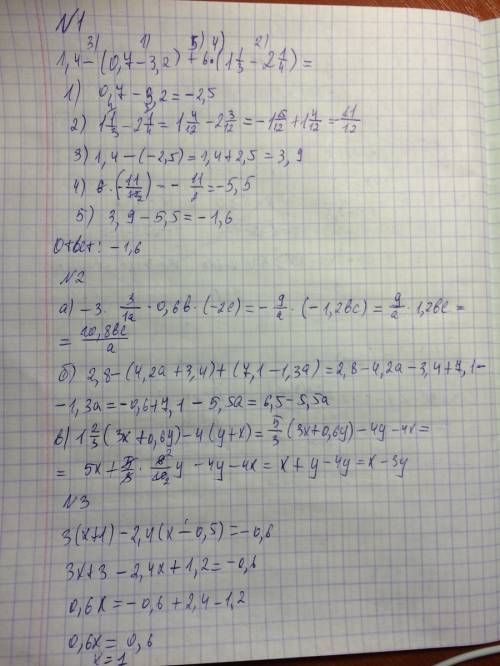 N1
3) 1) 5) 4) 2)
1,4-(0,7-3,2)+6·(1 1/3 - 2 1/4)=
1) 0,7-3,2=-2,5
2) 1 1/3 - 2 1/4 = 1 4/12 - 2 3/12 =
3) 1,4-(-2,5)=1,4+2,5=3,9
4) 6·(-11/12)=-11/2=-5,5
5) 3,9-5,5=-1,6
Ответ: -1,6
N2
а) -3· 3/1a ·0,6b·(-2c)=- 9/a ·(-1,2bc)= 9/a ·1,2bc=
= 10,8bc/a
б) 2,8-(4,2a+3,4)+(7,1-1,3a)=2,8-4,2a-3,4+7,1-
-1,3a=-0,6+7,1-5,5a=6,5-5,5a
в) 1 2/3 (3x+0,6y)-4(y+x)= 5/3 (3x+0,6y)-4y-4x=
= 5x+ 5/3 · 6/10 y -4y-4x=x+y-4y=x-3y
N3
3(x+1)-2,4(x-0,5)=-0,6
3x+3-2,4x+1,2=-0,6
0,6x=-0,6+2,4-1,2
0,6x=0,6
x=1